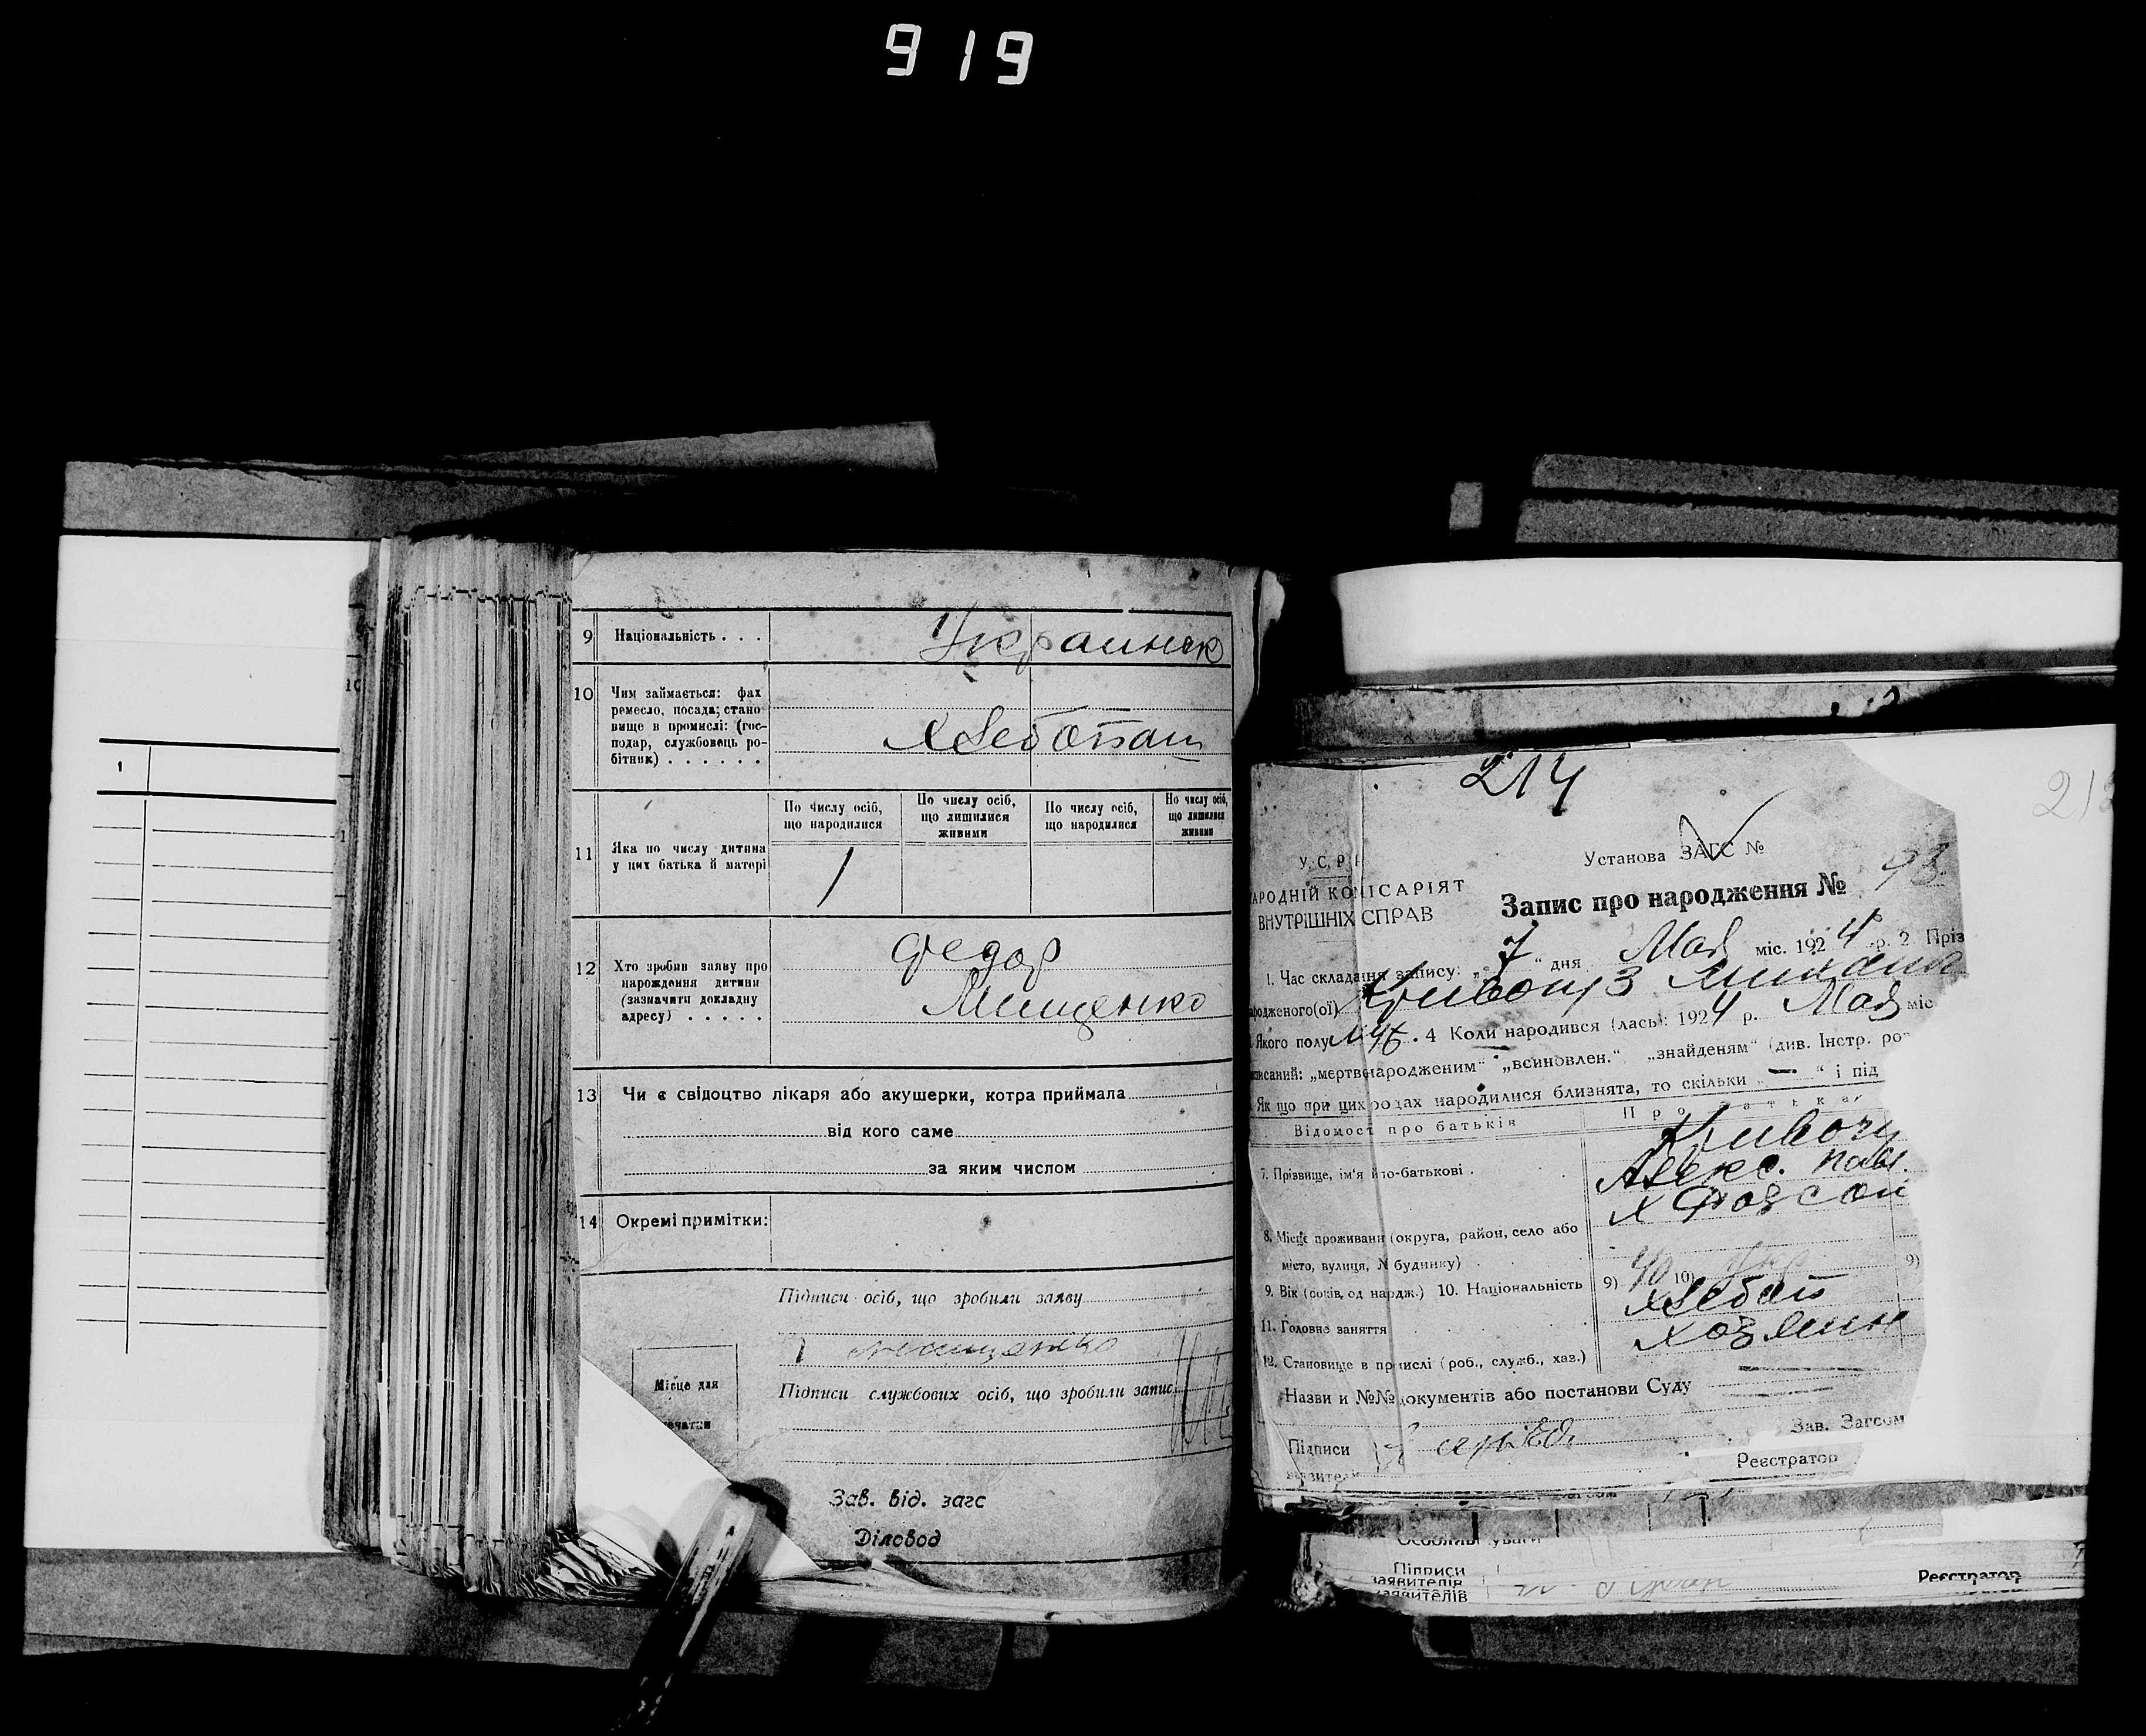 919
1
9 Національність . . .
Украинск
10 Чим займається: фах
ремесло, посада; стано
вище в промислі: (гос-
подар, службовець ро-
бітник) . . . . . .
Хлебопаш
11 Яка по числу дитина
у цих батька й матері
По числу осіб,
що народилися
По числу осіб,
що лишилися
живими
По числу осіб,
що народилися
По числу осіб,
що лишилися
живими
1
12 Хто зробив заяву про
нарождення дитини
(зазначити докладну
адресу) . . . . .
Федор
Мищенко
13 Чи є свідоцтво лікаря або акушерки, котра приймала
від кого саме
за яким числом
14 Окремі примітки:
Підписи осіб, що зробили заяву
Мищенко
Місце для
печатки
Підписи службових осіб, що зробили запис
Зав. від. загс
Діловод
214
213
У.С.Р.Р.
Установа ЗАГС №
АРОДНІЙ КОМІСАРІЯТ
ВНУТРІШНІХ СПРАВ
Запис про народження № 93
1. Час складання запису: „7“ дня Мая міс. 1924 р. 2 Пріз
ародженого(ої)
Якого полу Муж. 4 Коли народився (лась): 1924 р. Мая міс
писаний: „мертвнародженим“ „всиновлен.“ „знайденям“ (див. Інстр. ро
Як що при цих родах народилися близнята, то скільки „—“ і під
Відомост про батьків
Про батька
7. Прізвище, ім'я й по-батькові .
Кривоч
Алекс. Павл.
8. Місце проживання (округа, район, село або
місто, вулиця, № будинку)
9. Вік (років, од нардж.) 10. Національність 9) 40 10) Укр 9)
11. Головне заняття
Хлебоп
12. Становище в промислі (роб., служб., хаз.)
хозяин
Назви и №№ документів або постанови Суду
Підписи
заявителів
Зав. Загсом
Реєстратор
Загсом
Особливі уваги
Підписи
заявителів
заявителів
Реєстратор